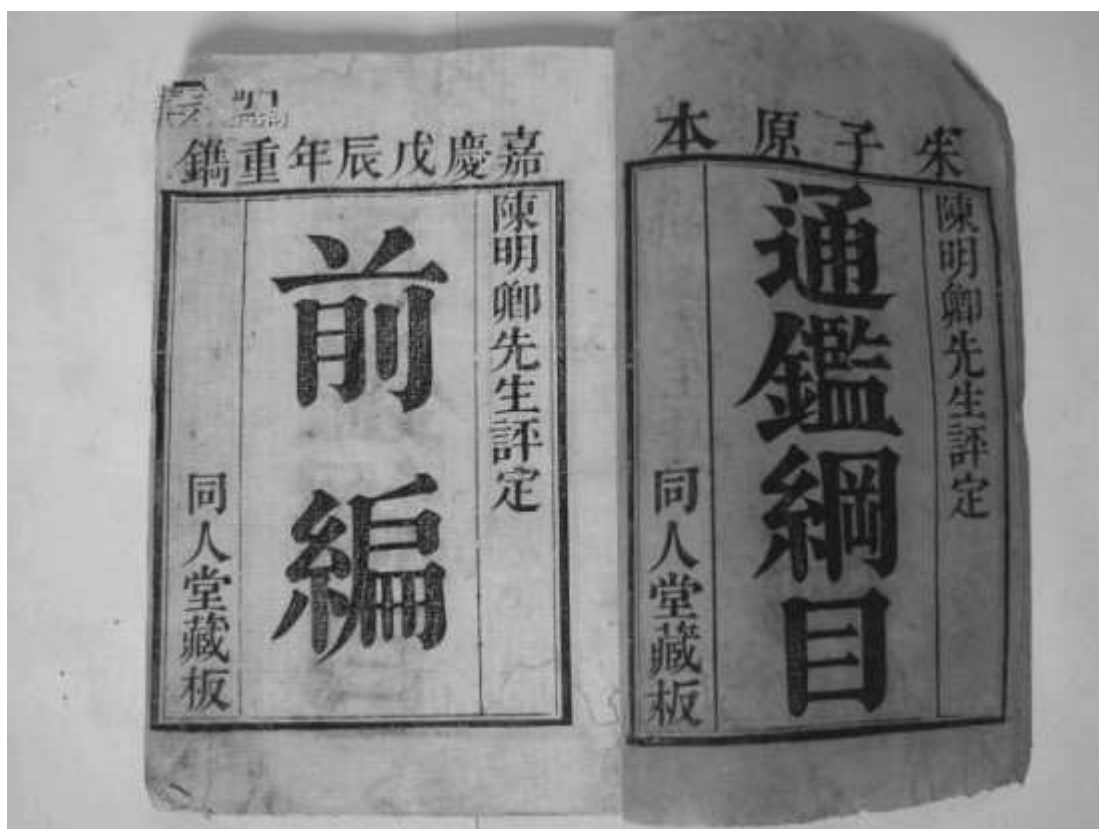 朱子原本
陳明卿先生評定
通鑑綱目
同人堂藏板
嘉慶戊辰年重鐫
陳明卿先生評定
前編
同人堂藏板